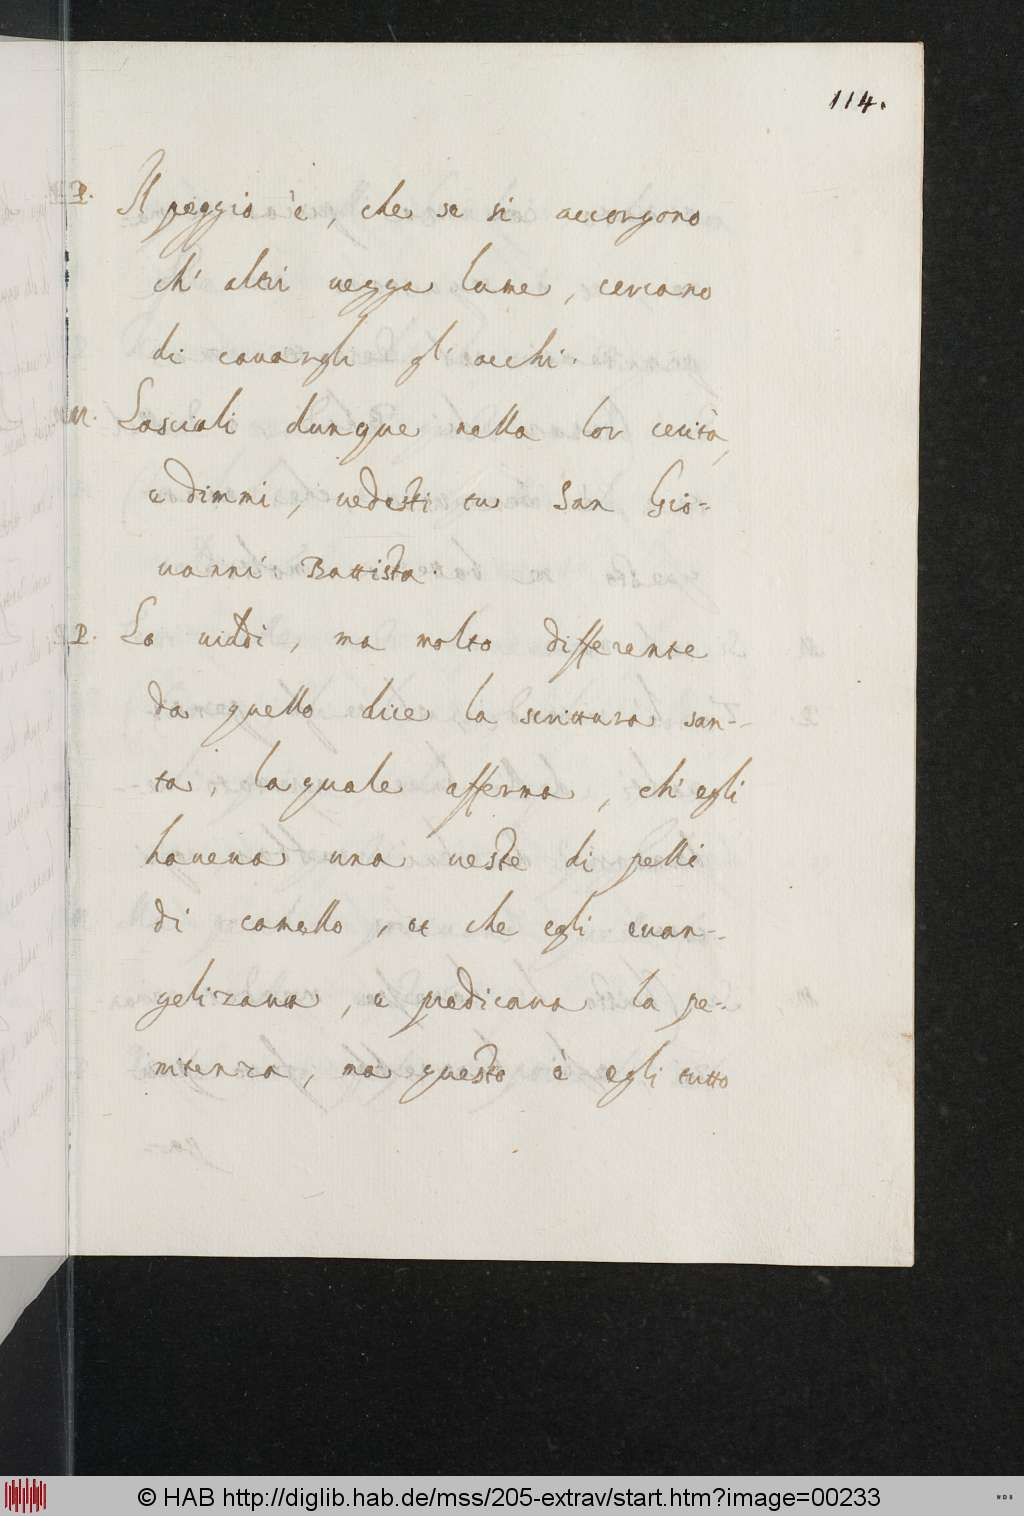 114.
P. Il peggio è, che se si accorgono
ch' altri uegga lume, cercano
di cauargli gl' occhi.
M. Lasciali dunque nella lor cecità,
e dimmi, uedesti tu San Gio-
uanni Battista.
P. Lo uiddi, ma molto differente
da quello dice la scrittura san-
ta, laquale afferma, ch' egli
haueua una ueste di pelli
di camello, et che egli euan-
gelizaua, e predicaua la pe-
nitenza, ma questo è egli tutto
© HAB http://diglib.hab.de/mss/205-extrav/start.htm?image=00233